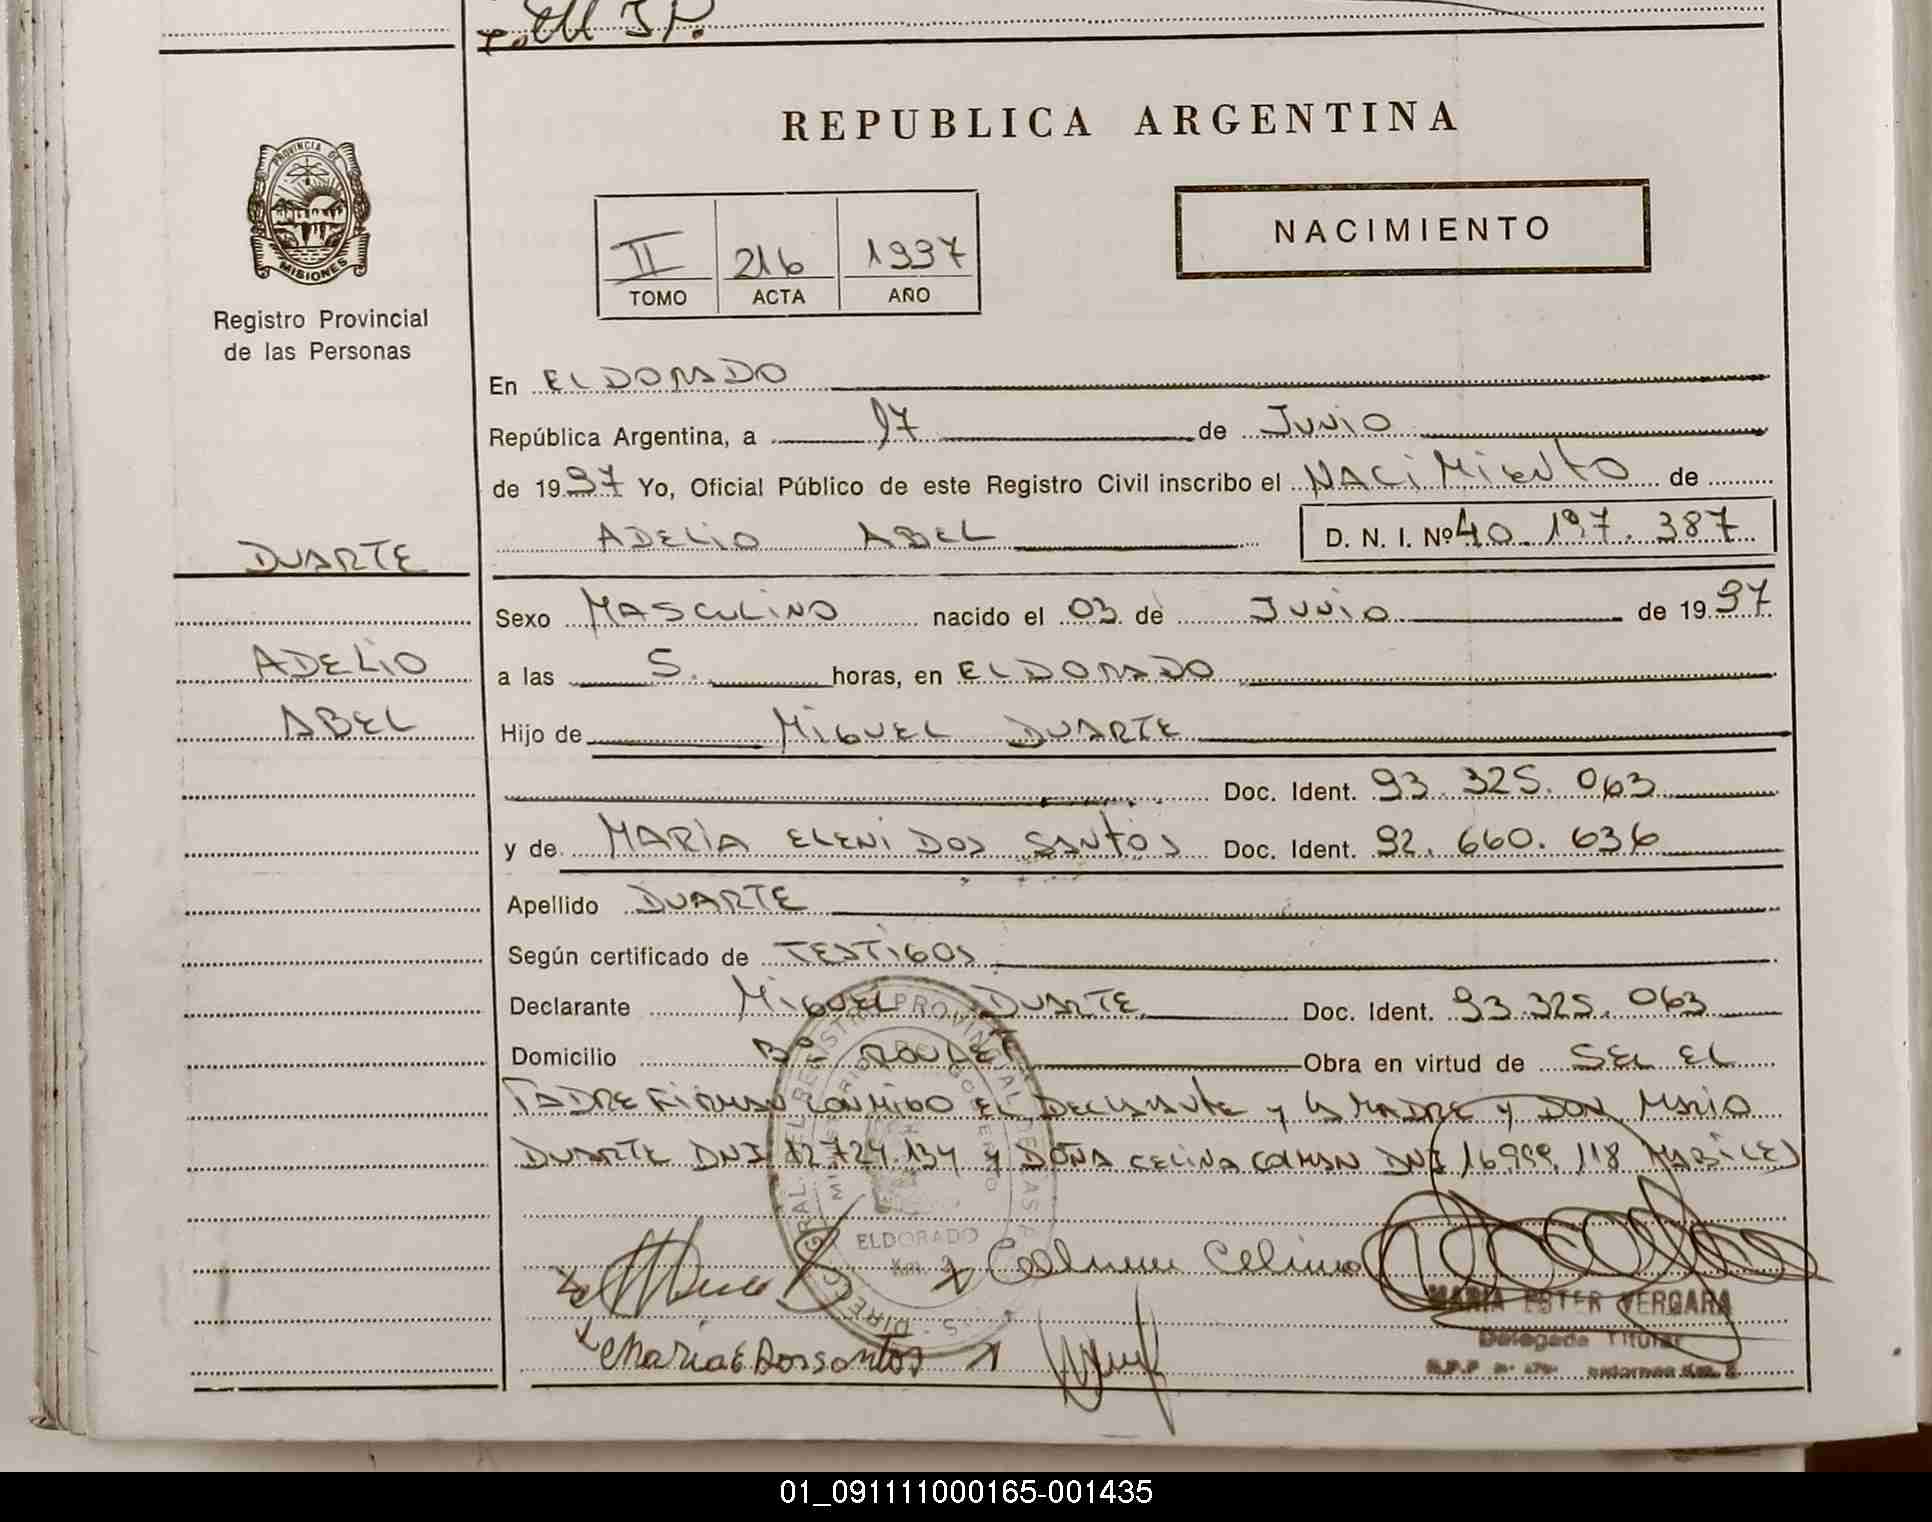 REPUBLICA ARGENTINA
PROVINCIA DE
MISIONES
Registro Provincial
de las Personas
II 216 1997
TOMO ACTA AÑO
NACIMIENTO
En ELDORADO
República Argentina, a 17 de JUNIO
de 1997 Yo, Oficial Público de este Registro Civil inscribo el NACIMIENTO de
ADELIO ABEL D. N. I. Nº 40.197.387
DUARTE
ADELIO
ABEL
Sexo MASCULINO nacido el 03 de JUNIO de 1997
a las 5. horas, en ELDORADO
Hijo de MIGUEL DUARTE
Doc. Ident. 93.325.063
y de MARIA ELENI DOS SANTOS Doc. Ident. 92.660.636
Apellido DUARTE
Según certificado de TESTIGOS
Declarante MIGUEL DUARTE Doc. Ident. 93.325.063
Domicilio Bº Obra en virtud de SER EL
PADRE FIRMAN CONMIGO EL DECLARANTE Y LA MADRE Y DON MARIO
DUARTE DNI 12.724.134 Y DOÑA CELINA DNI 16.999.118
ELDORADO
Celina
Maria E Dossantos
MARIA ESTER VERGARA
Delegada Titular
01_091111000165-001435